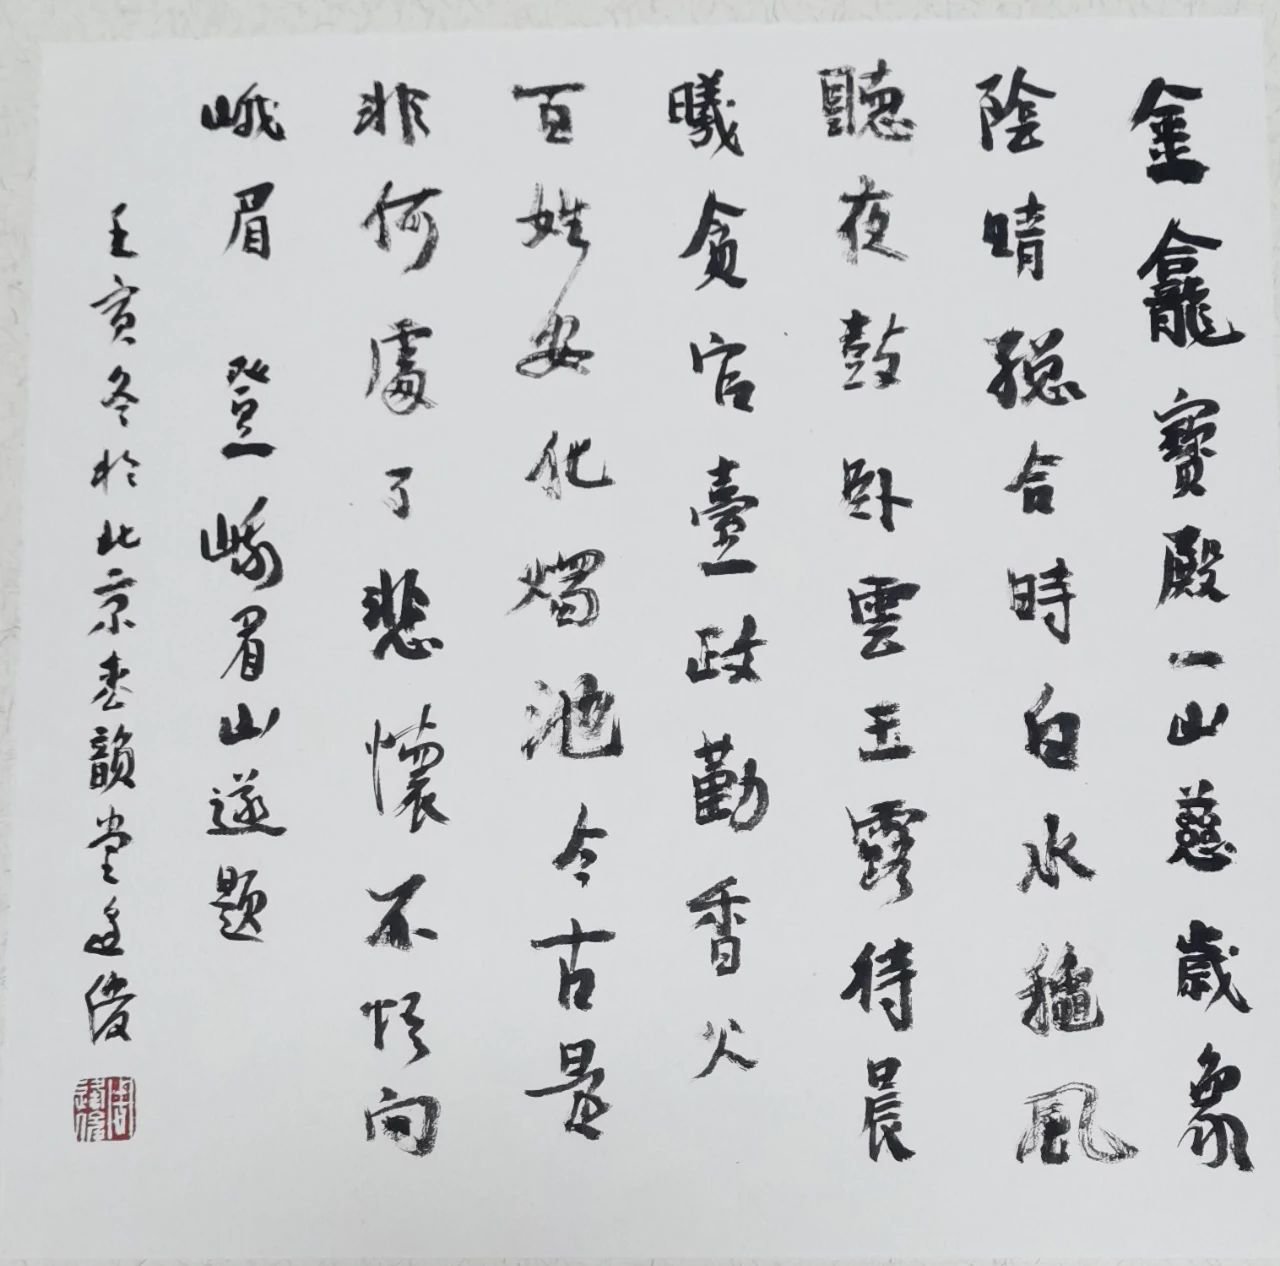 金龕寶殿一山慈歲象
陰晴總合時白水穐風
聽夜鼓卧雲玉露待晨
曦貪官壹政勤香火
百姓安化燭池今古是
非何處了悲懷不悟向
峨眉 登峨眉山遂題
壬寅冬於北京春韻堂俊